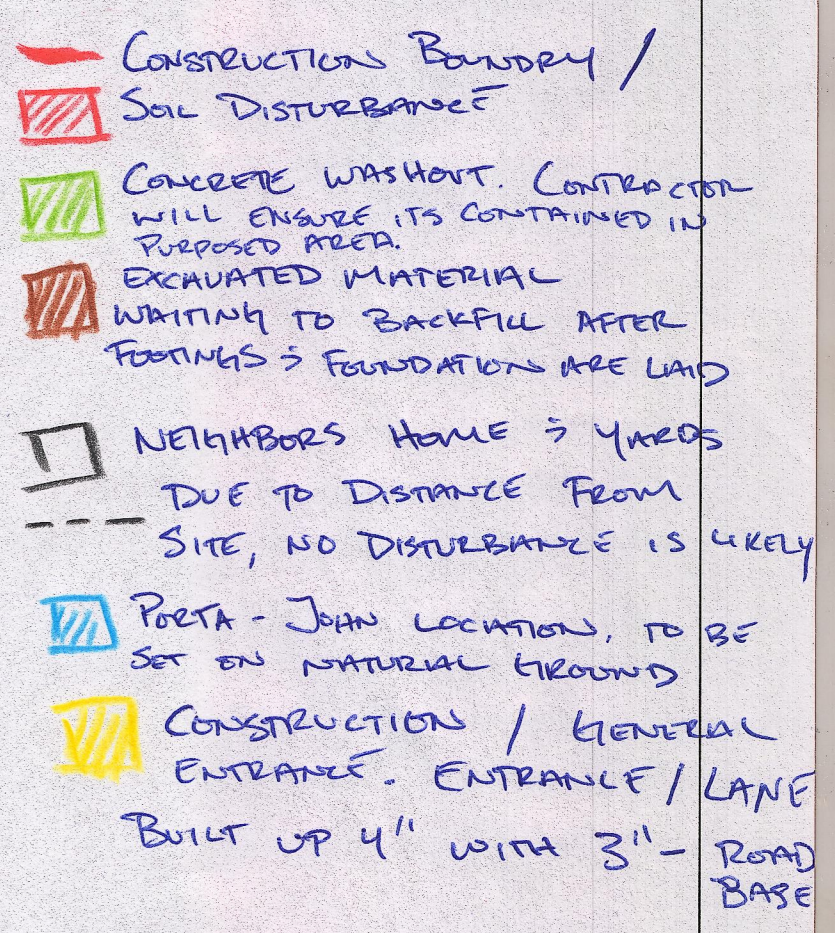 CONSTRUCTION BOUNDRY /
SOIL DISTURBANCE
CONCRETE WASHOUT. CONTRACTOR
WILL ENSURE ITS CONTAINED IN
PURPOSED AREA.
EXCAVATED MATERIAL
WAITING TO BACKFILL AFTER
FOOTINGS & FOUNDATION ARE LAID
NEIGHBORS HOME & YARDS
DUE TO DISTANCE FROM
SITE, NO DISTURBANCE IS LIKELY
PORTA-JOHN LOCATION, TO BE
SET ON NATURIAL GROUND
CONSTRUCTION / GENERAL
ENTRANCE. ENTRANCE / LANE
BUILT UP 4" WITH 3"- ROAD
BASE